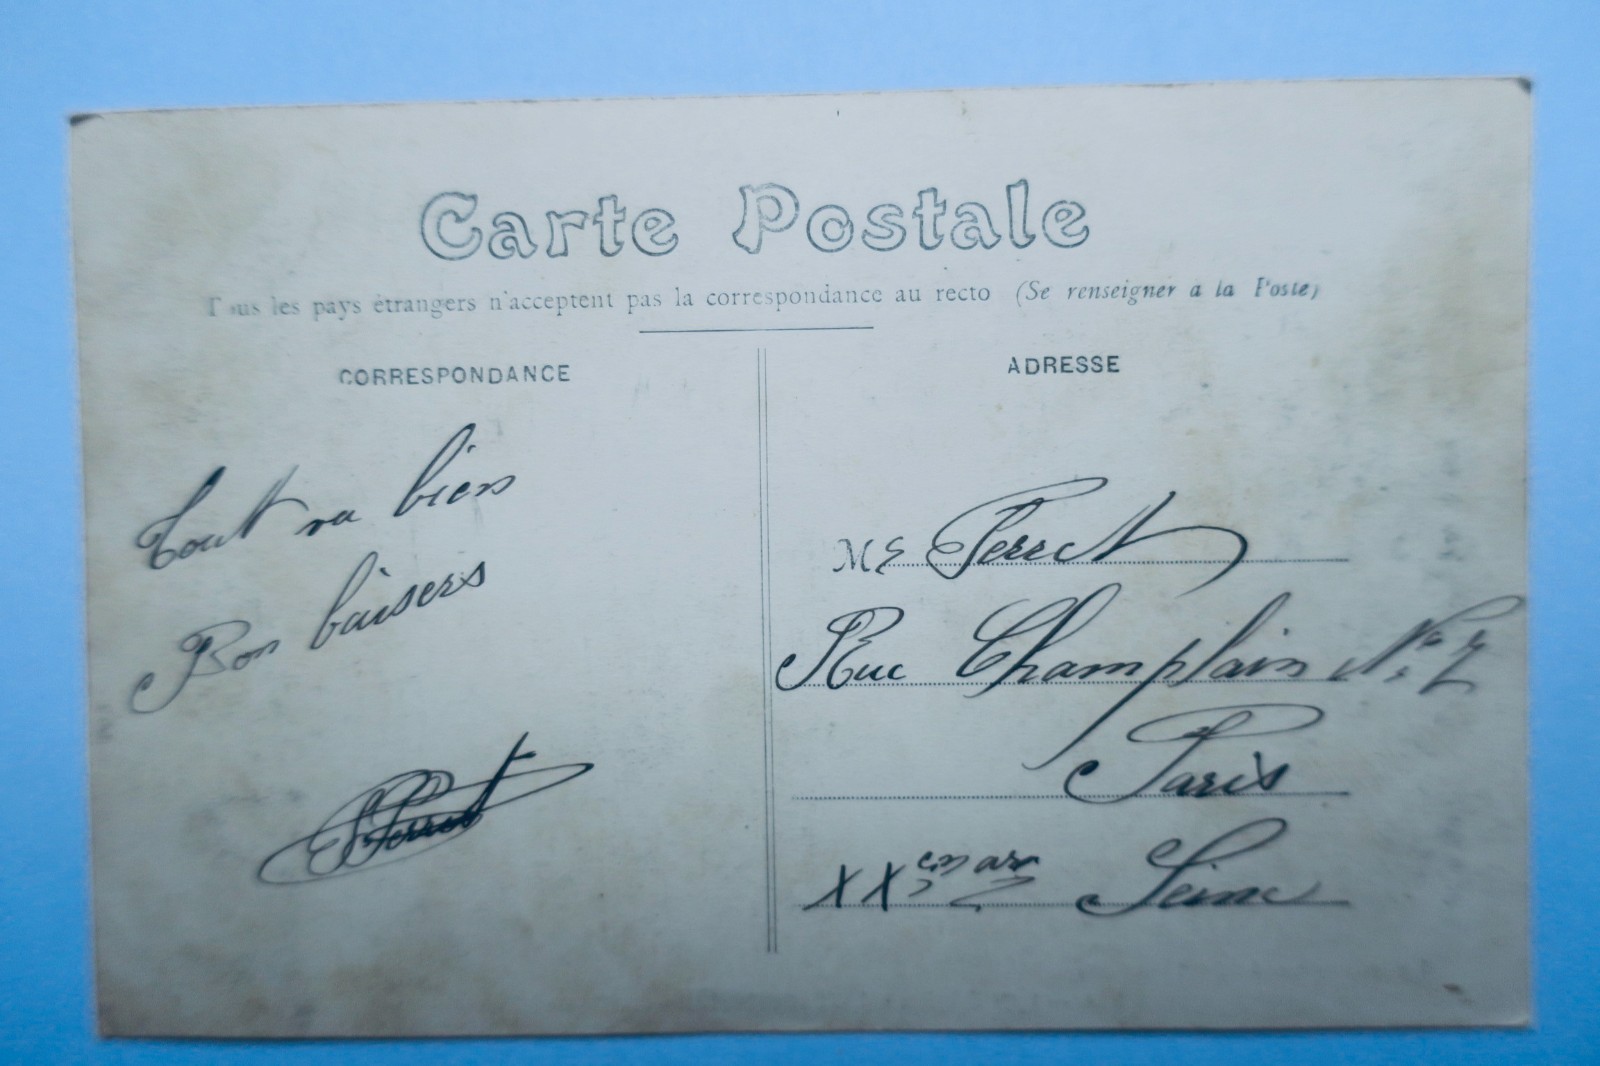 Carte Postale
Tous les pays étrangers n'acceptent pas la correspondance au recto (Se renseigner à la Poste)
CORRESPONDANCE
Tout va bien
Bon baisers
Perret
ADRESSE
Me Perret
Rue Champlain No 7
Paris
XXem ar Seine